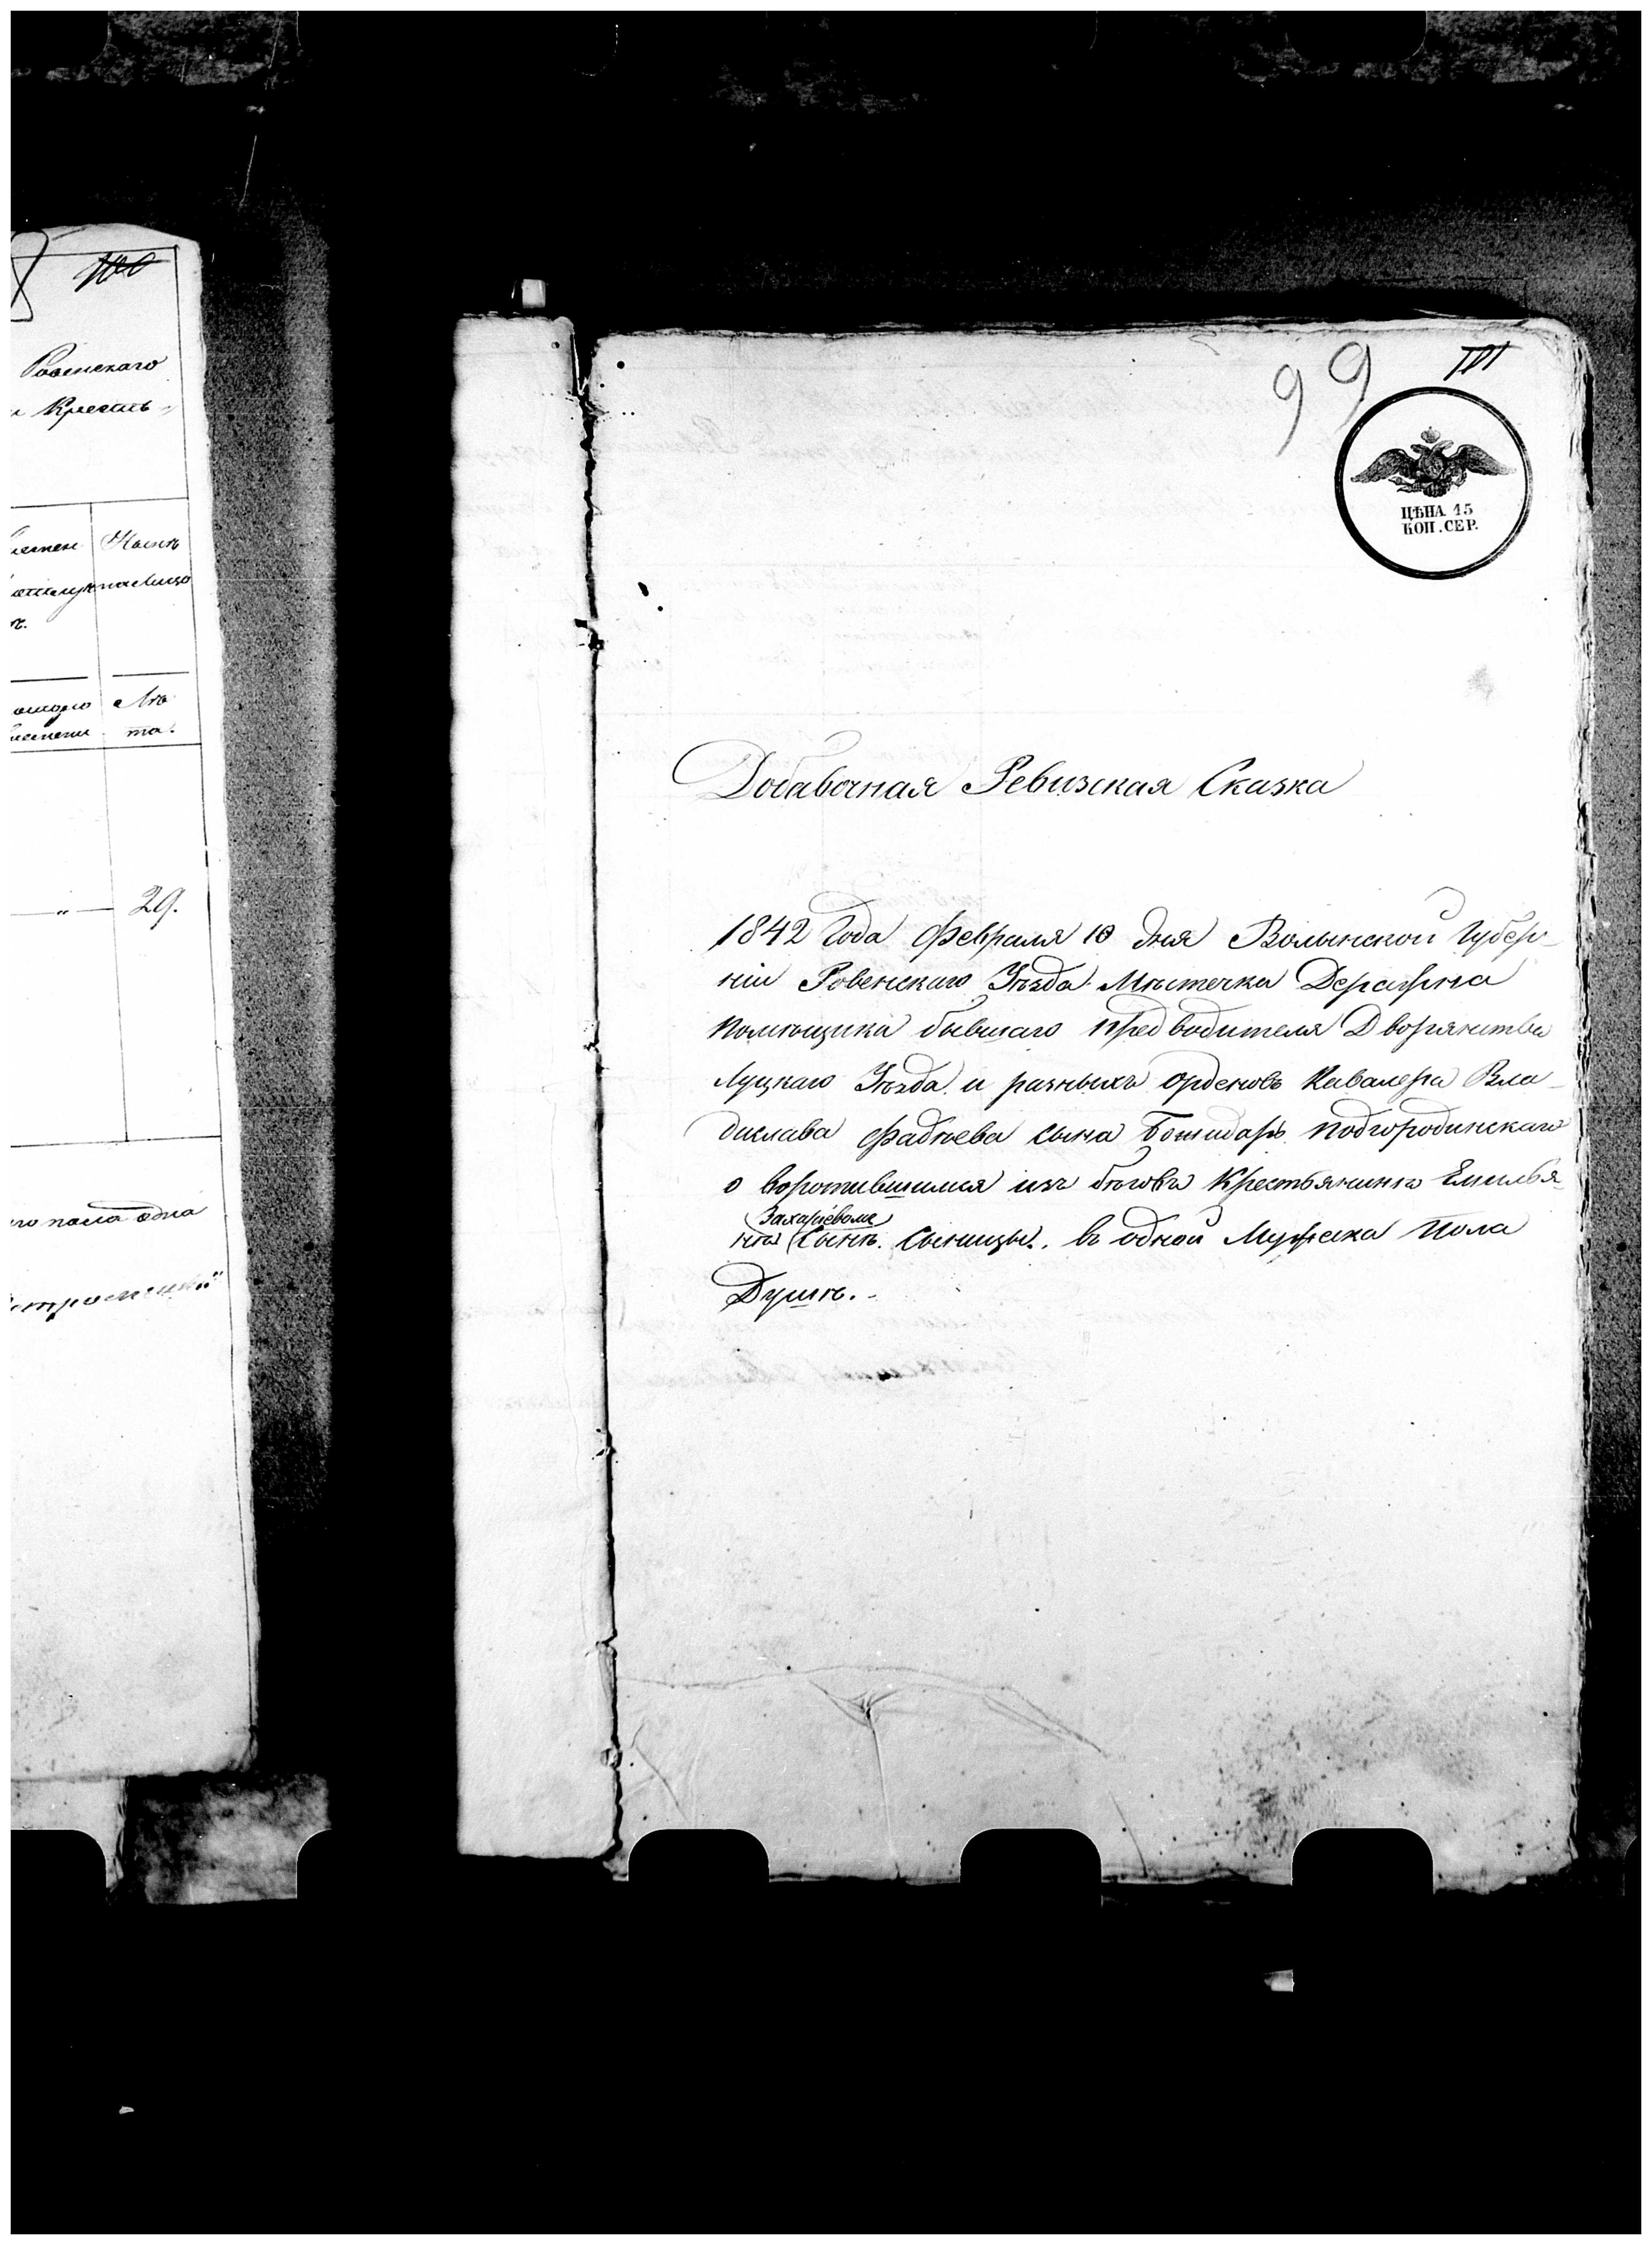 100
Ровенскаго
и Крестъ-
Насто
ящаго
Лѣ
та.
29.
го пола одна
99
101
ЦѢНА 15
КОП. СЕР.
Добавочная Ревизская Сказка
1842 Года Февраля 10 дня Волынской Губер-
ніи Ровенскаго Уѣзда Мѣстечка Деражна
Помѣщика бывшаго Предводителя Дворянства
Луцкаго Уѣзда и разныхъ орденовъ Кавалера Вла-
дислава Фадѣева сына Божидаръ Подгородинскаго
о воротившимся изъ бѣговъ Крестьянинѣ Емилья-
Захаріевоме
нѣ Сынѣ Сыницы. въ одной Мужеска Пола
Душѣ.-